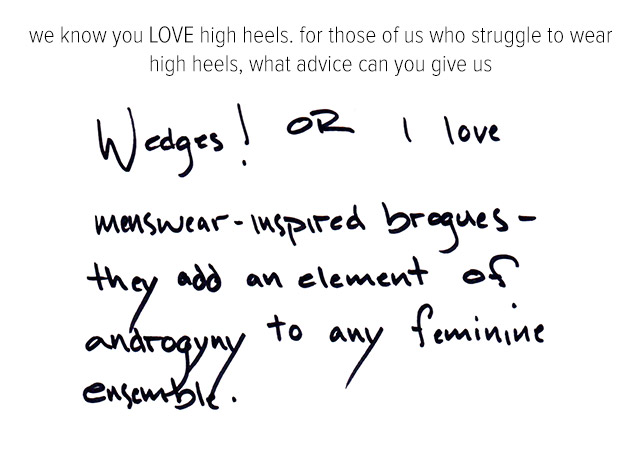 we know you LOVE high heels. for those of us who struggle to wear
high heels, what advice can you give us
Wedges! OR I love
menswear-inspired brogues-
they add an element of
androgyny to any feminine
ensemble.